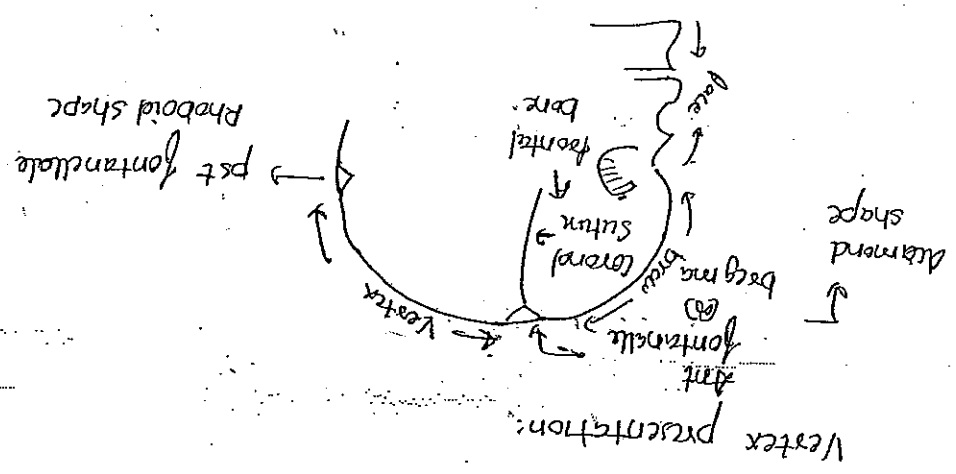 Vertex presentation:
Ant
fontanelle
(or)
bregma
diamond
shape
brow
Vertex
Coronal
Sutun
frontal
bone
pst fontanellale
Rhoboid shape
face